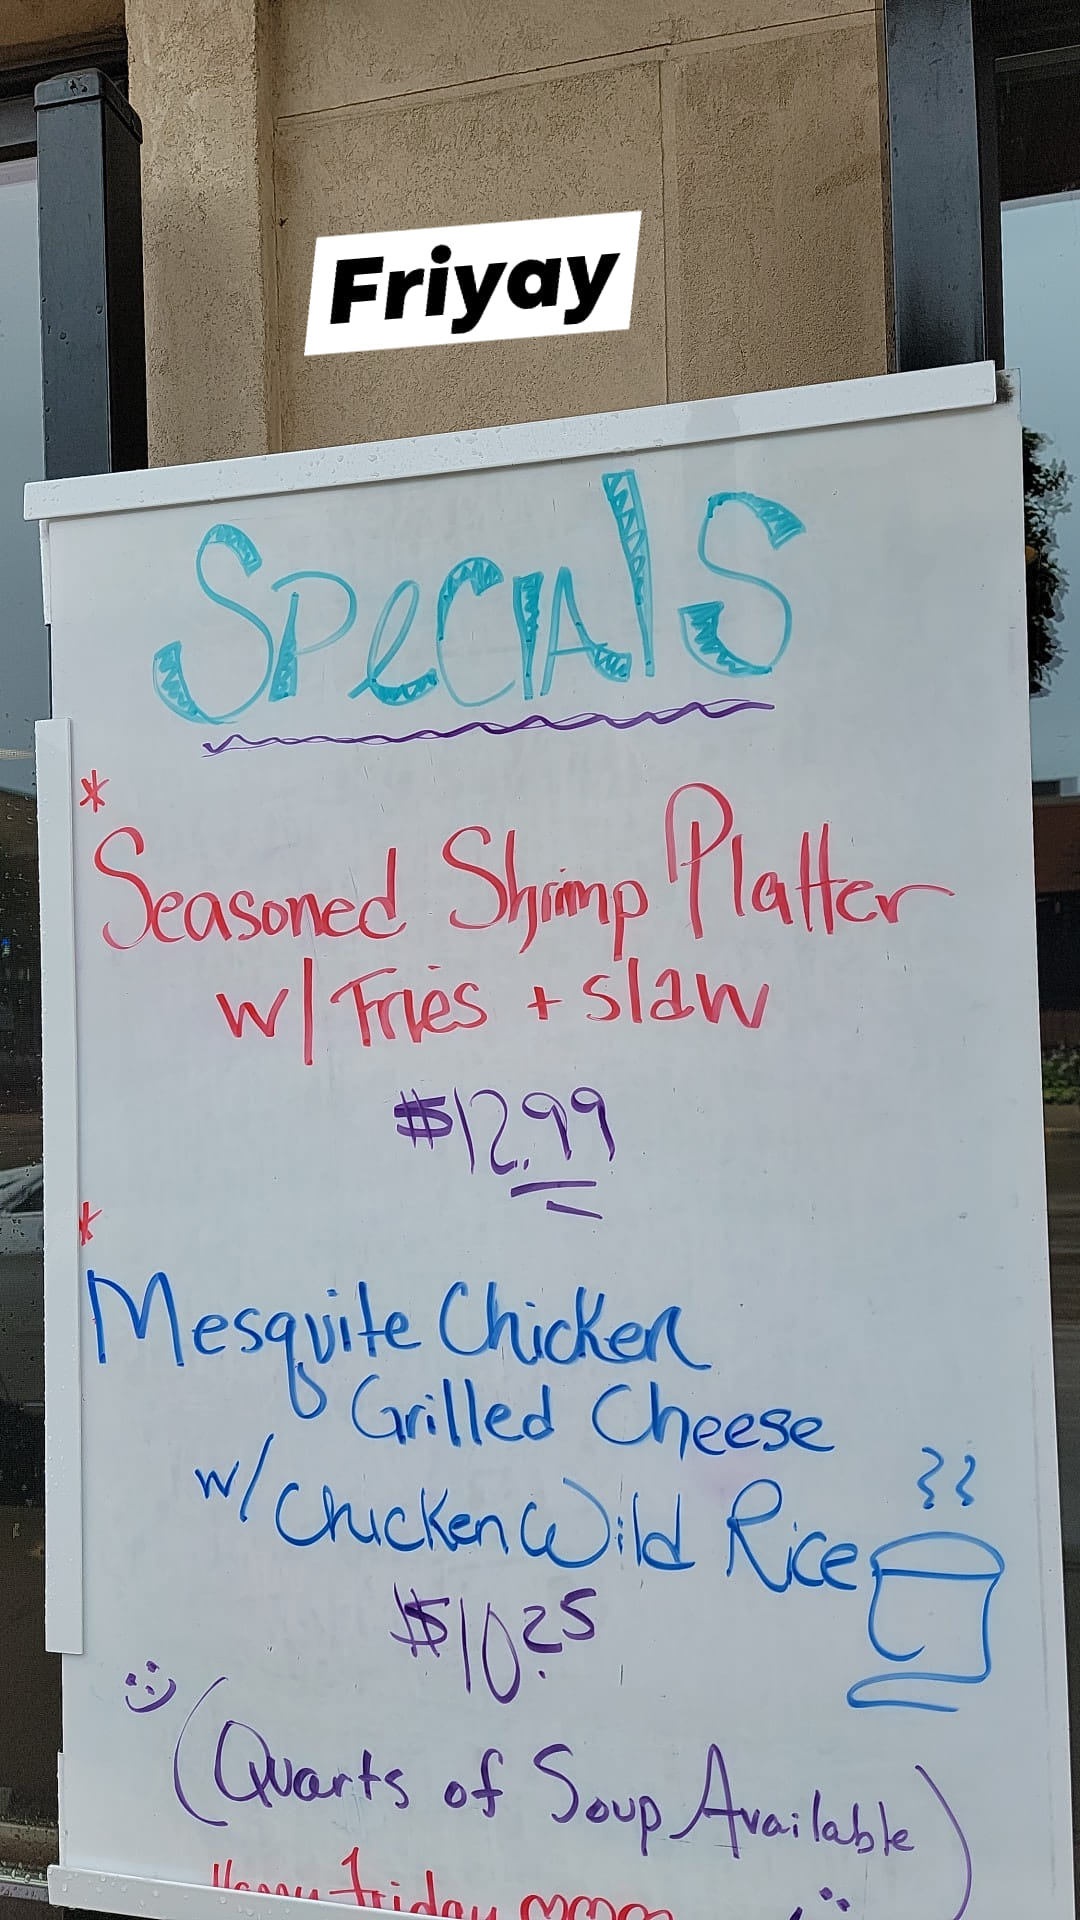 Friyay
Specials
* Seasoned Shrimp Platter
w/ Fries + slaw
$12.99
* Mesquite Chicken
Grilled Cheese
w/ Chicken Wild Rice
$10.25
(Quarts of Soup Available)
Happy Friday